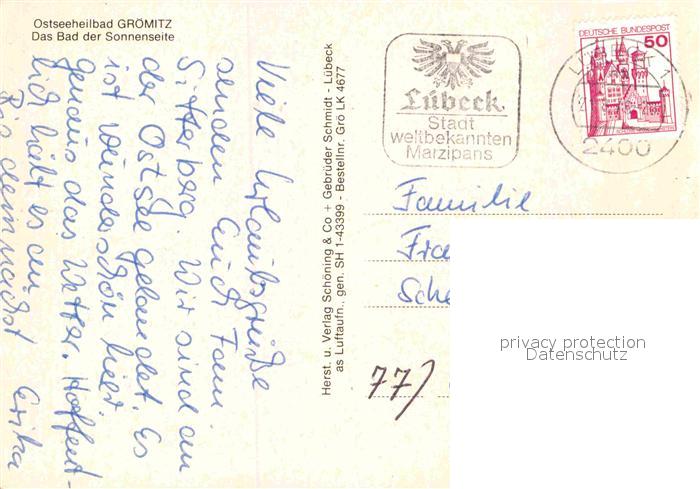 Ostseeheilbad GRÖMITZ
Das Bad der Sonnenseite
Viele Urlaubsgrüße
senden Euch Fam
Sitterberg. Wir sind an
der Ostsee gelandet. Es
ist wunderschön hier
genau das Wetter. Hoffent-
lich hielt es an
Bis demnächst Erika
Herst. u. Verlag Schöning & Co + Gebrüder Schmidt - Lübeck
as Luftaufn., gen. SH 1-43399 - Bestellnr. Grö LK 4677
Lübeck
Stadt
weltbekannten
Marzipans
DEUTSCHE BUNDESPOST
50
2400
Familie
Fra
Sche
77)
privacy protection
Datenschutz